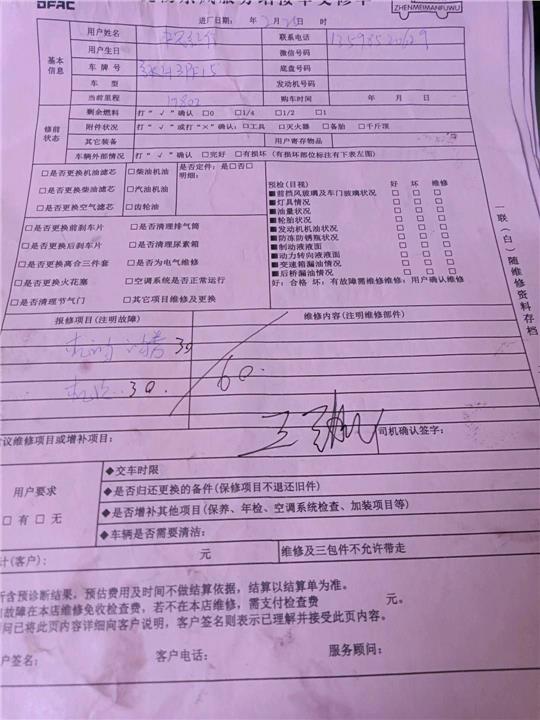 DFAC
ZHENMEIMANFUWU
进厂日期： 年 2月 时
用户姓名 联系电话
用户生日 微信号码
基本信息 车 牌 号 底盘号码
车 型 发动机号码
当前里程 17802 购车时间 年 月 日
剩余燃料 打“√”确认 □0 □1/4 □1/2 □1
修前状态 附件状况 打“√”或打“×”确认：□工具 □灭火器 □备胎 □千斤顶
其它装备 用户寄存物品
车辆外部情况 打“√”确认 □完好 □有损坏（有损坏部位标注有下表左图）
□是否更换机油滤芯 □柴油机油 是否定件：是□否□
明细：
□是否更换柴油滤芯 □汽油机油
□是否更换空气滤芯 □齿轮油
□是否更换前刹车片 □是否清理排气筒
□是否更换后刹车片 □是否清理尿素箱
□是否更换离合三件套 □是否为电气维修
□是否更换火花塞 □空调系统是否正常运行
□是否清理节气门 □其它项目维修及更换
预检(目视) 好 坏 维修
■前挡风玻璃及车门玻璃状况 □ □ □
■灯具情况 □ □ □
■油量状况 □ □ □
■轮胎状况 □ □ □
■发动机机油状况 □ □ □
■防冻防锈瓶状况 □ □ □
■制动液液面 □ □ □
■动力转向液液面 □ □ □
■变速箱漏油情况 □ □ □
■后桥漏油情况 □ □ □
好：合格 坏：有故障需维修维修：用户确认维修
一联（白）随维修资料存档
报修项目(注明故障) 维修内容(注明维修部件)
30
30. 60.
议维修项目或增补项目： 司机确认签字：
用户要求
□ 有 □ 无
◆交车时限
◆是否归还更换的备件(保修项目不退还旧件)
◆是否增补其他项目(保养、年检、空调系统检查、加装项目等)
◆车辆是否需要清洁：
计(客户)： 元 维修及三包件不允许带走
所含预诊断结果，预估费用及时间不做结算依据，结算以结算单为准。
故障在本店维修免收检查费，若不在本店维修，需支付检查费 元。
问已将此页内容详细向客户说明，客户签名则表示已理解并接受此页内容。
户签名： 客户电话： 服务顾问：